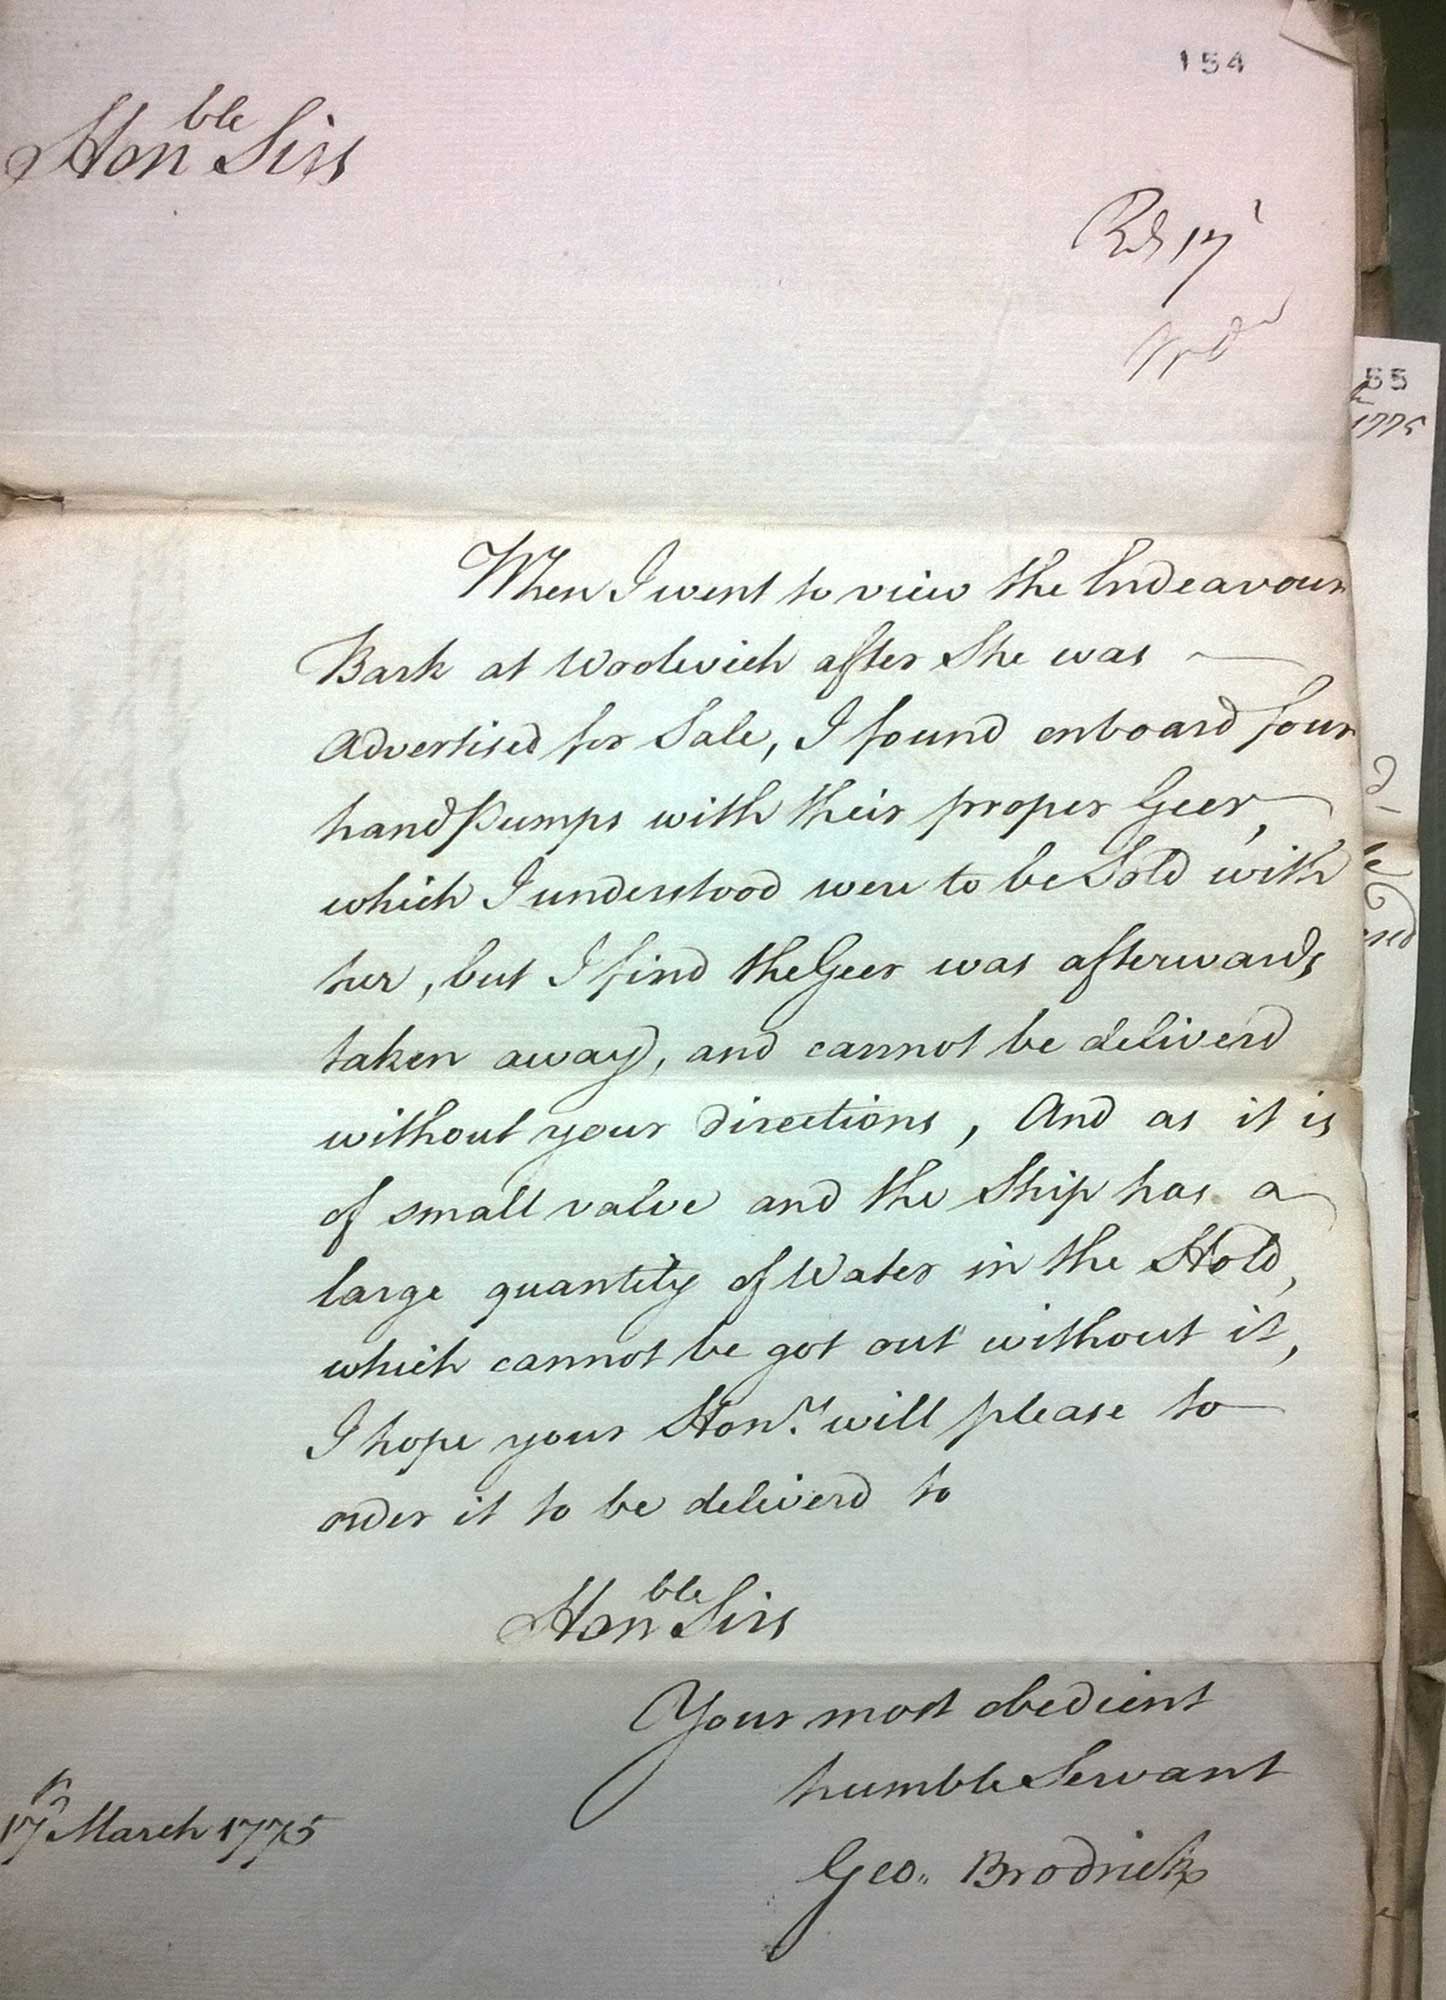 154
Hon.ble Sirs
Rd 17
55
1775
When I went to view the Endeavour
Bark at Woolwich after She was
Advertised for Sale, I found onboard four
hand Pumps with their proper Geer,
which I understood were to be Sold with
her, but I find the Geer was afterwards
taken away, and cannot be deliverd
without your directions, And as it is
of small value and the Ship has a
large quantity of Water in the Hold,
which cannot be got out without it,
I hope your Hon.rs will please to
order it to be deliverd to
Hon.ble Sirs
Your most obedient
humble Servant
17th March 1775
Geo,, Brodrick